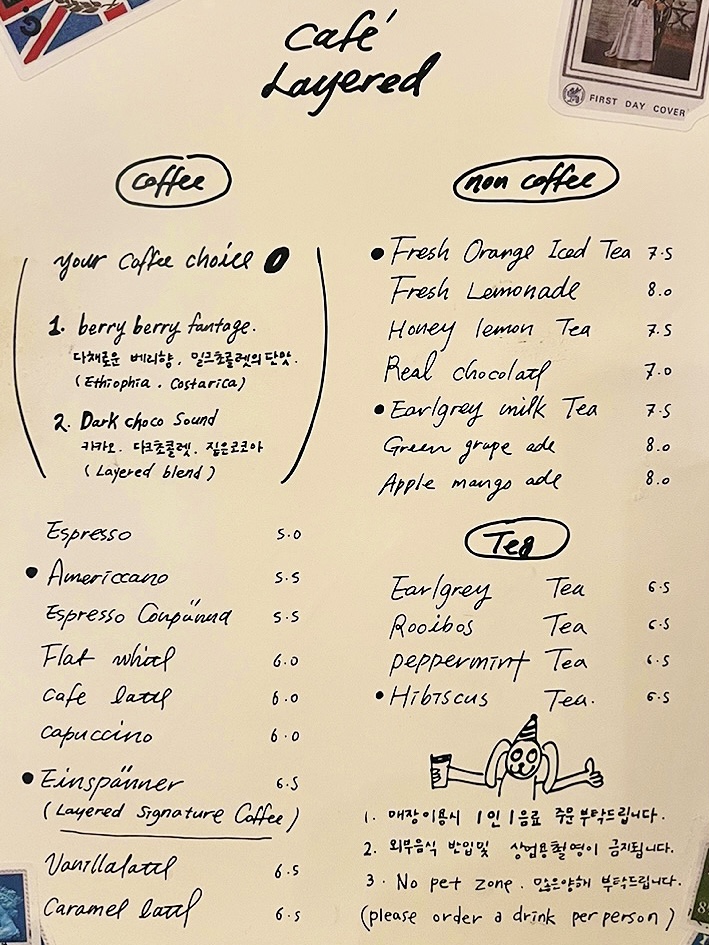 FIRST DAY COVER
Café
Layered
coffee
your coffee choice
1. berry berry fantage.
다채로운 베리향, 밀크초콜렛의 단맛.
(Ethiophia . Costarica)
2. Dark choco Sound
카카오. 다크초콜렛. 짙은코코아
(Layered blend)
Espresso 5.0
• Americcano 5.5
Espresso Conpänna 5.5
Flat white 6.0
cafe latte 6.0
capuccino 6.0
• Einspänner 6.5
(Layered Signature Coffee)
Vanillalatte 6.5
Caramel latte 6.5
non coffee
• Fresh Orange Iced Tea 7.5
Fresh Lemonade 8.0
Honey lemon Tea 7.5
Real chocolate 7.0
• Earlgrey milk Tea 7.5
Green grape ade 8.0
Apple mango ade 8.0
Tea
Earlgrey Tea 6.5
Rooibos Tea 6.5
peppermint Tea 6.5
• Hibiscus Tea. 6.5
1. 매장이용시 1인 1음료 주문 부탁드립니다.
2. 외부음식 반입및 상업용촬영이 금지됩니다.
3. No pet zone. 많은양해 부탁드립니다.
(please order a drink per person)